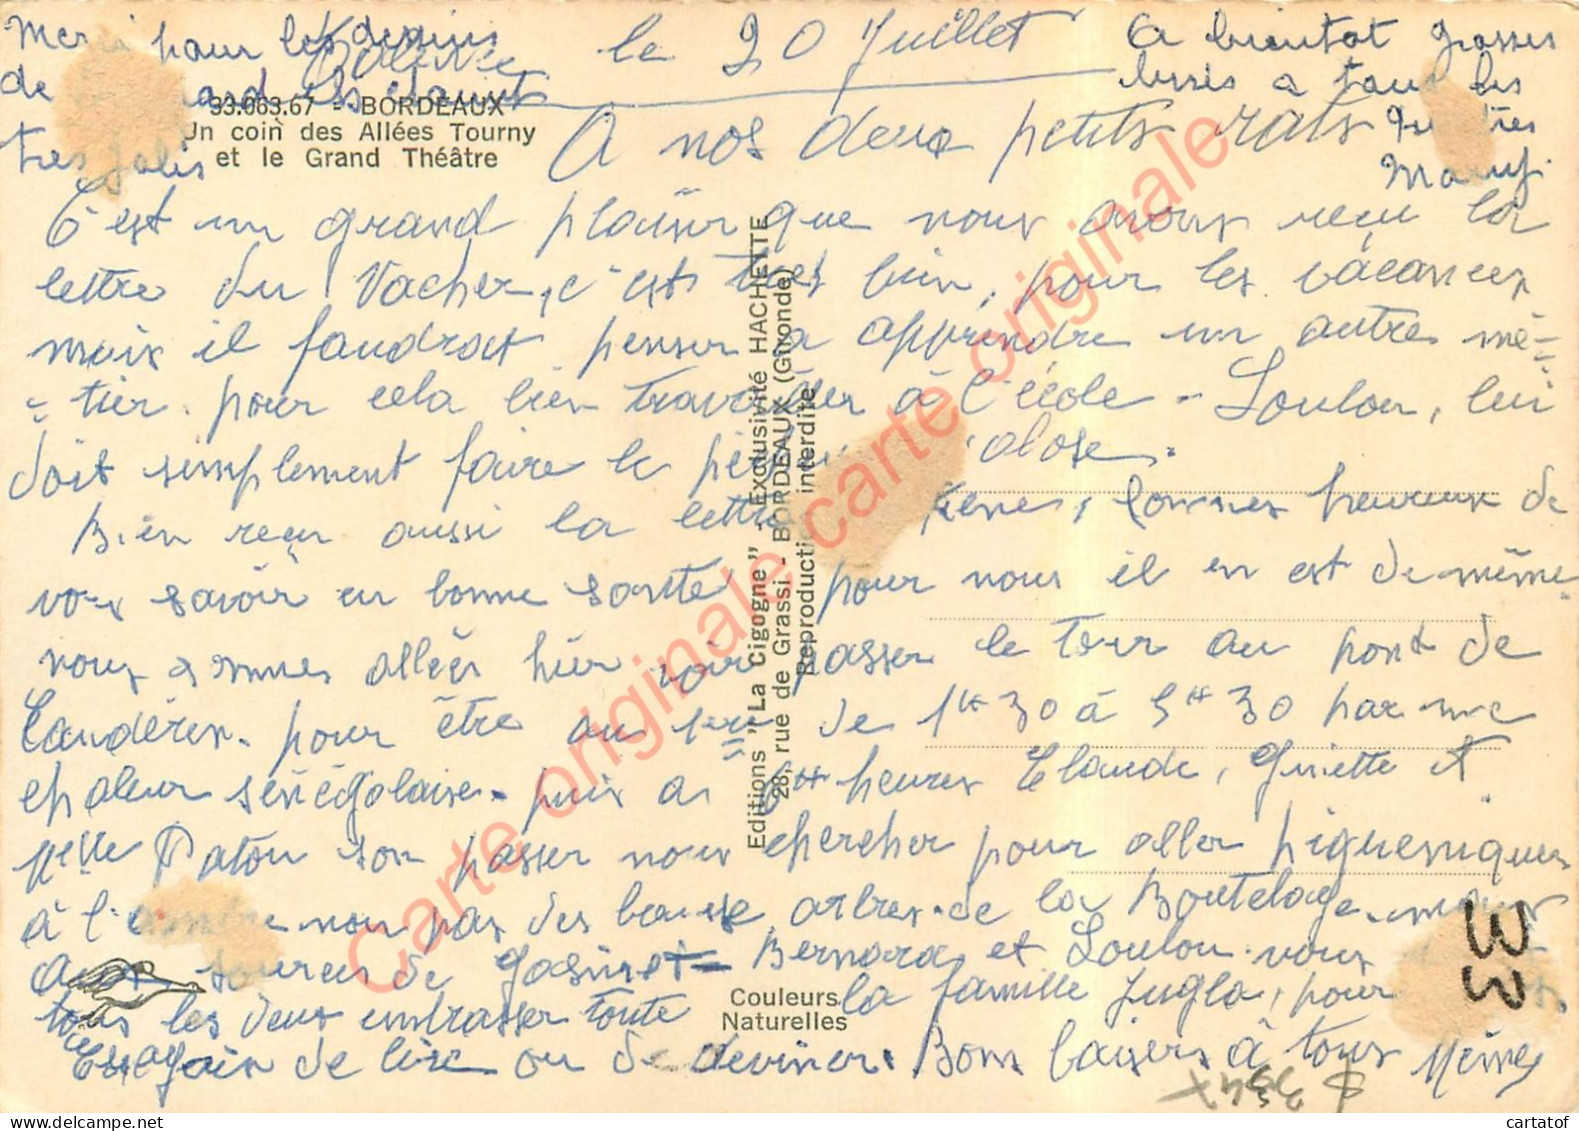 Merci pour les dessins
de Bernard ils étaient
tres jolis
le 20 Juillet
A bientot grosses
bises a tous les
quatres
Mamy.
33.063.67 - BORDEAUX
Un coin des Allées Tourny
et le Grand Théâtre
A nos deux petits rats
C'est un grand plaisir que nous avons reçu la
lettre du Vacher, c'est tres bien, pour les vacances,
mais il faudrait penser a apprendre un autre mé-
-tier. pour cela bien travailler à l'école - Loulou, lui
doit simplement faire la même chose.
Bien reçu aussi la lettre sommes heureux de
vous savoir en bonne santé pour nous il en est de même
nous sommes allées hier voir passer le tour au pont de
Caudéran. pour être au 1er de 1H30 à 5H30 par une
chaleur sénégalaise. puis a 6H heures Claude, Ginette et
Melle Paton son passer nous chercher pour aller piqueniquer
à l'ombre non pas des beaux arbres. de la Boutelage. mais
aux sources de Bernard et Loulou vous
tous les deux embrasser toute la famille Jugla, pour
Essayair de lire ou de deviner. Bons baisers à tous Mémé
Editions "La Cigogne" - Exclusivité HACHETTE
28, rue de Grassi - BORDEAUX (Gironde)
Reproduction interdite
Couleurs
Naturelles
Carte originale carte originale Carte originale
www.cartatof.com
cartatof